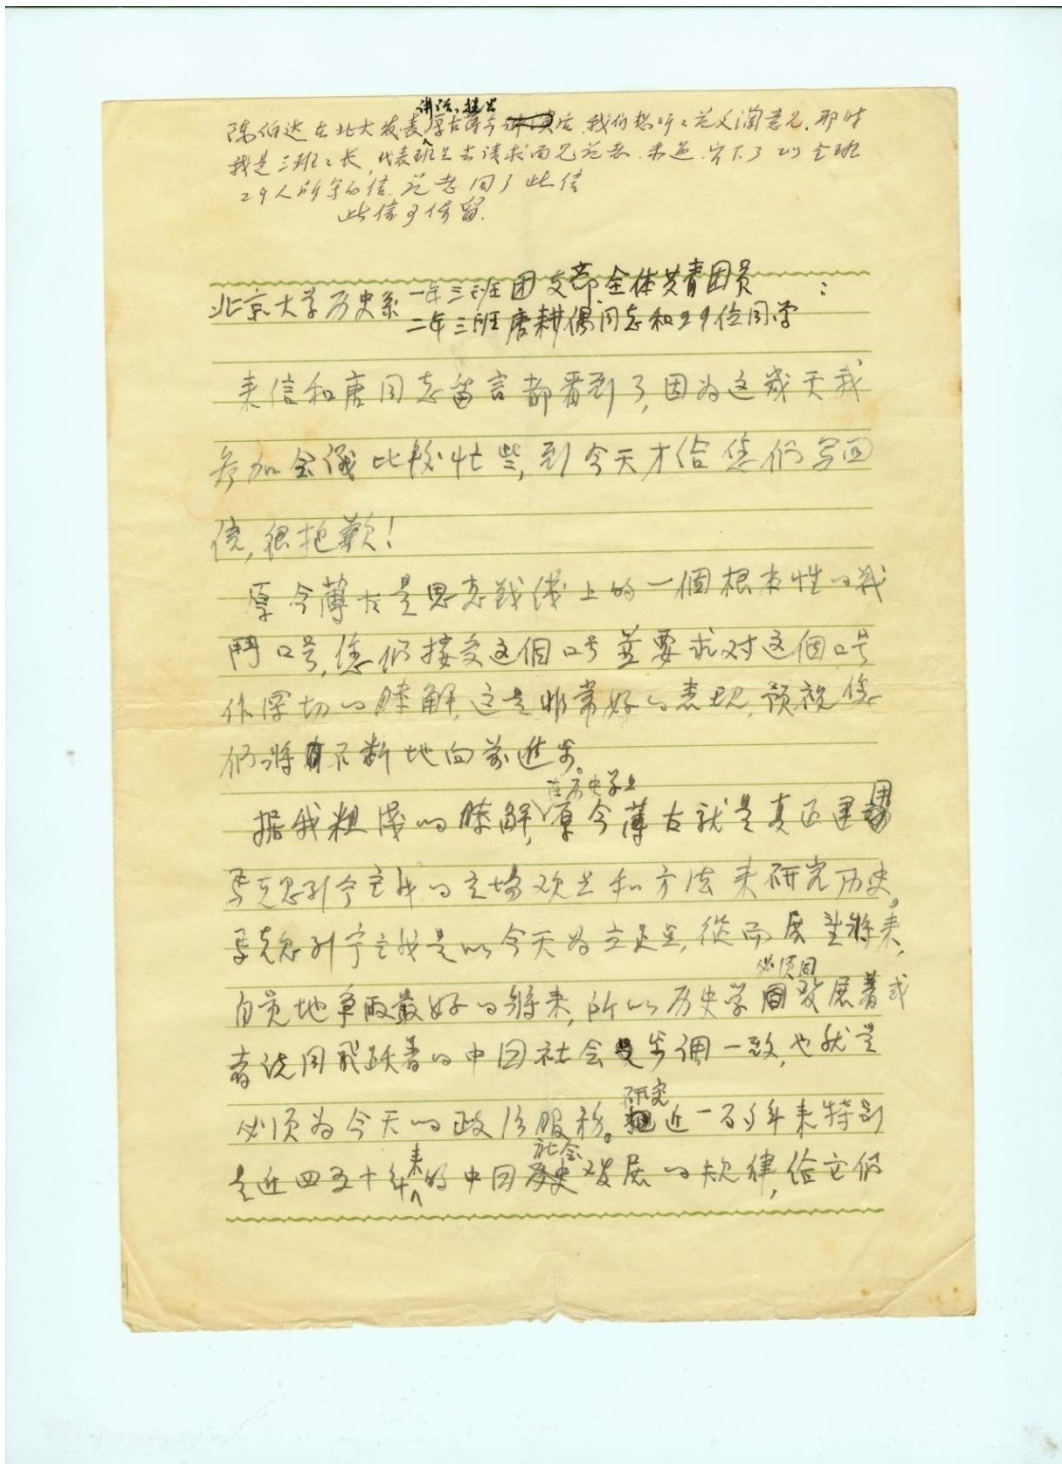 讲话，提出
陈伯达在北大发表厚古薄今后，我们想听听范文澜意见，那时
我是三班班长，代表班上去请求面见范老，未遇，留下了
29人所写的信，范老回了此信
此信可保留。
北京大学历史系一年三班团支部全体共青团员：
二年三班唐耕偶同志和29位同学
来信和唐同志留言都看到了，因为这几天我
参加会议比较忙些，到今天才给您们写回
信，很抱歉！
厚今薄古是思想战线上的一個根本性的战
鬥口号，您们接受这個口号並要求对这個口号
作深切的瞭解，这是非常好的表现，预祝您
们将不断地向前进步。
在历史学上
据我粗浅的瞭解，厚今薄古就是真正運用
马克思列宁主义的立场观点和方法来研究历史。
马克思列宁主义是以今天为立足点，從而展望将来，
必须同
自觉地争取最好的将来，所以历史学發展著或
者说同飛跃着的中国社会步调一致，也就是
研究
必须为今天的政治服务。近一百多年来特别
来 社会
是近四五十年的中国發展的规律，给它们